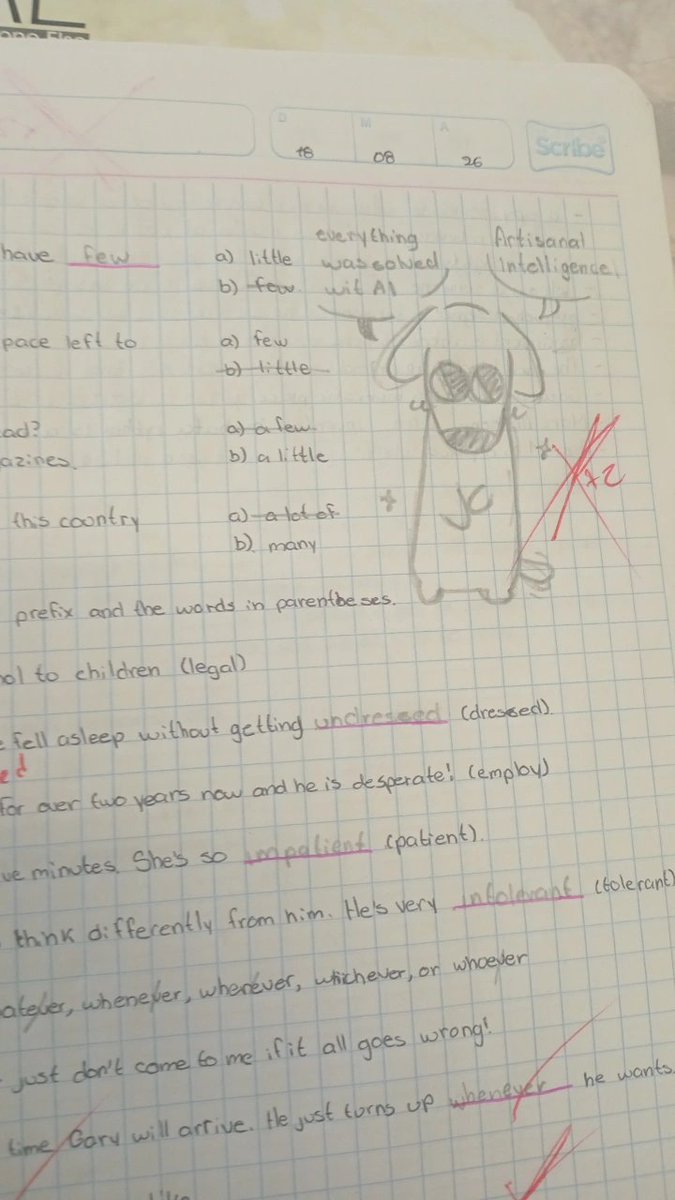 D M A
18 08 26
Scribe
everything Artisanal
have few a) little was solved Intelligence.
b) few wit AI
pace left to a) few
b) little
ad? a) a few
azines. b) a little
this country a) a lot of
b) many
JC
x2
prefix and the words in parentheses.
ol to children (legal)
e fell asleep without getting undressed (dressed).
ed
for over two years now and he is desperate! (employ)
ve minutes. She's so impatient (patient).
think differently from him. He's very intolerant (tolerant)
atever, whenever, whichever, or whoever
just don't come to me if it all goes wrong!
time Gary will arrive. He just turns up whenever he wants.